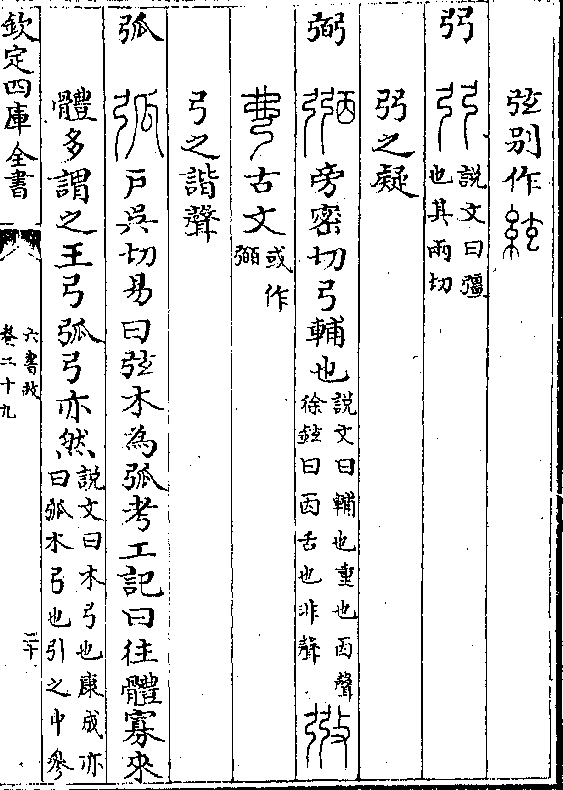 弦别作絃
弜
說文曰彊
也其兩切
弜之疑
弼
旁密切弓輔也
說文曰輔也重也㐁聲
徐鉉曰㐁舌也非聲
古文
或作
弓之諧聲
弧
戸吳切易曰弦木為弧考工記曰往體寡來
體多謂之王弓弧弓亦然
說文曰木弓也康成亦
曰弧木弓也引之中參
欽定四庫全書
六書故
卷二十九
二十